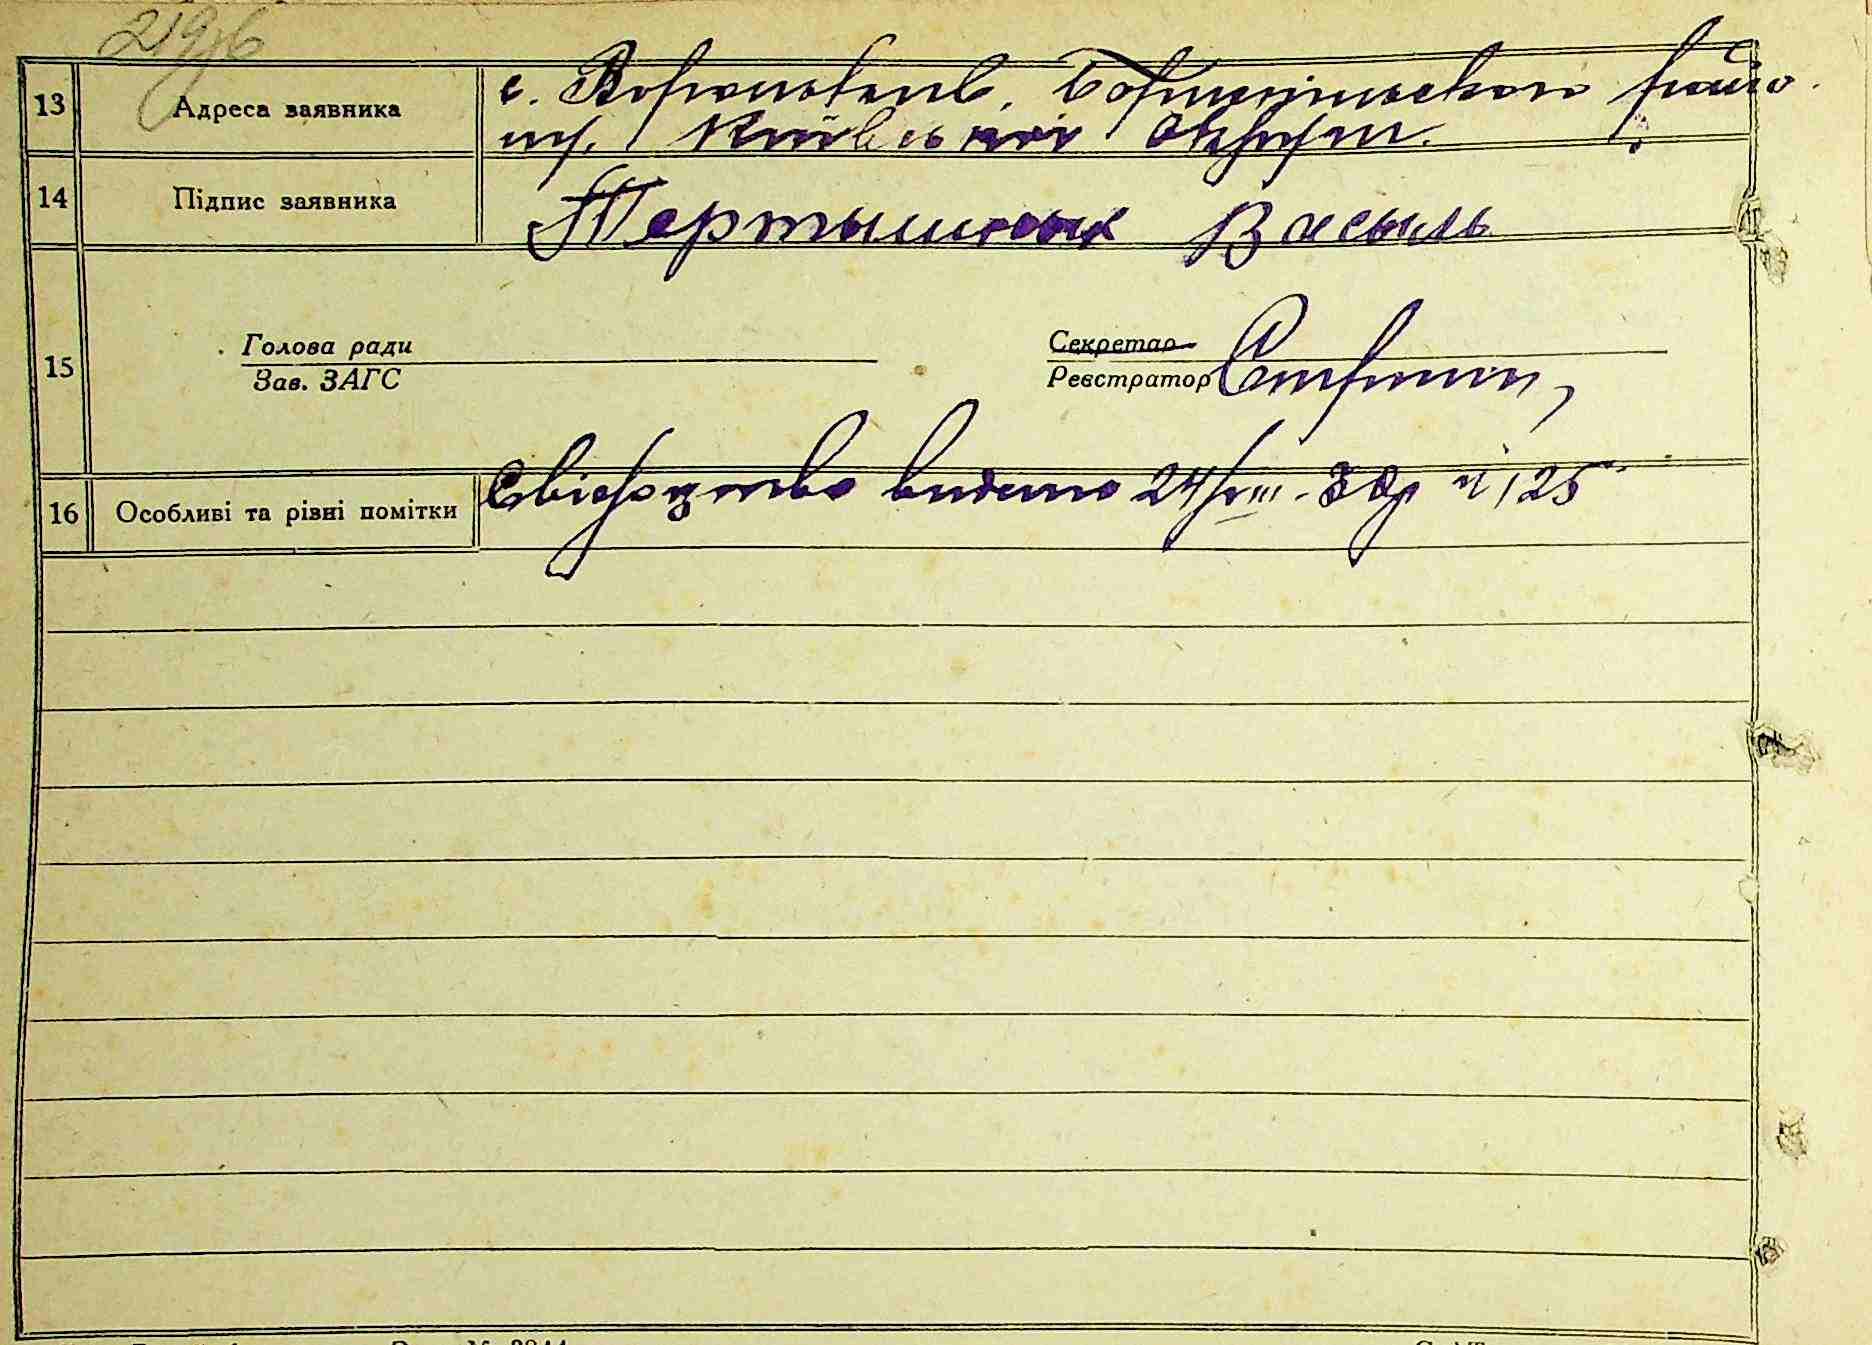 13 Адреса заявника с. Вороньків, Бориспільского райо
ну. Київської округи.
14 Підпис заявника Тертышнык Васыль
15 Голова ради Секретар
Зав. ЗАГС Реєстратор
16 Особливі та різні помітки Свідоцтво видано 24/VIII-30р № 125